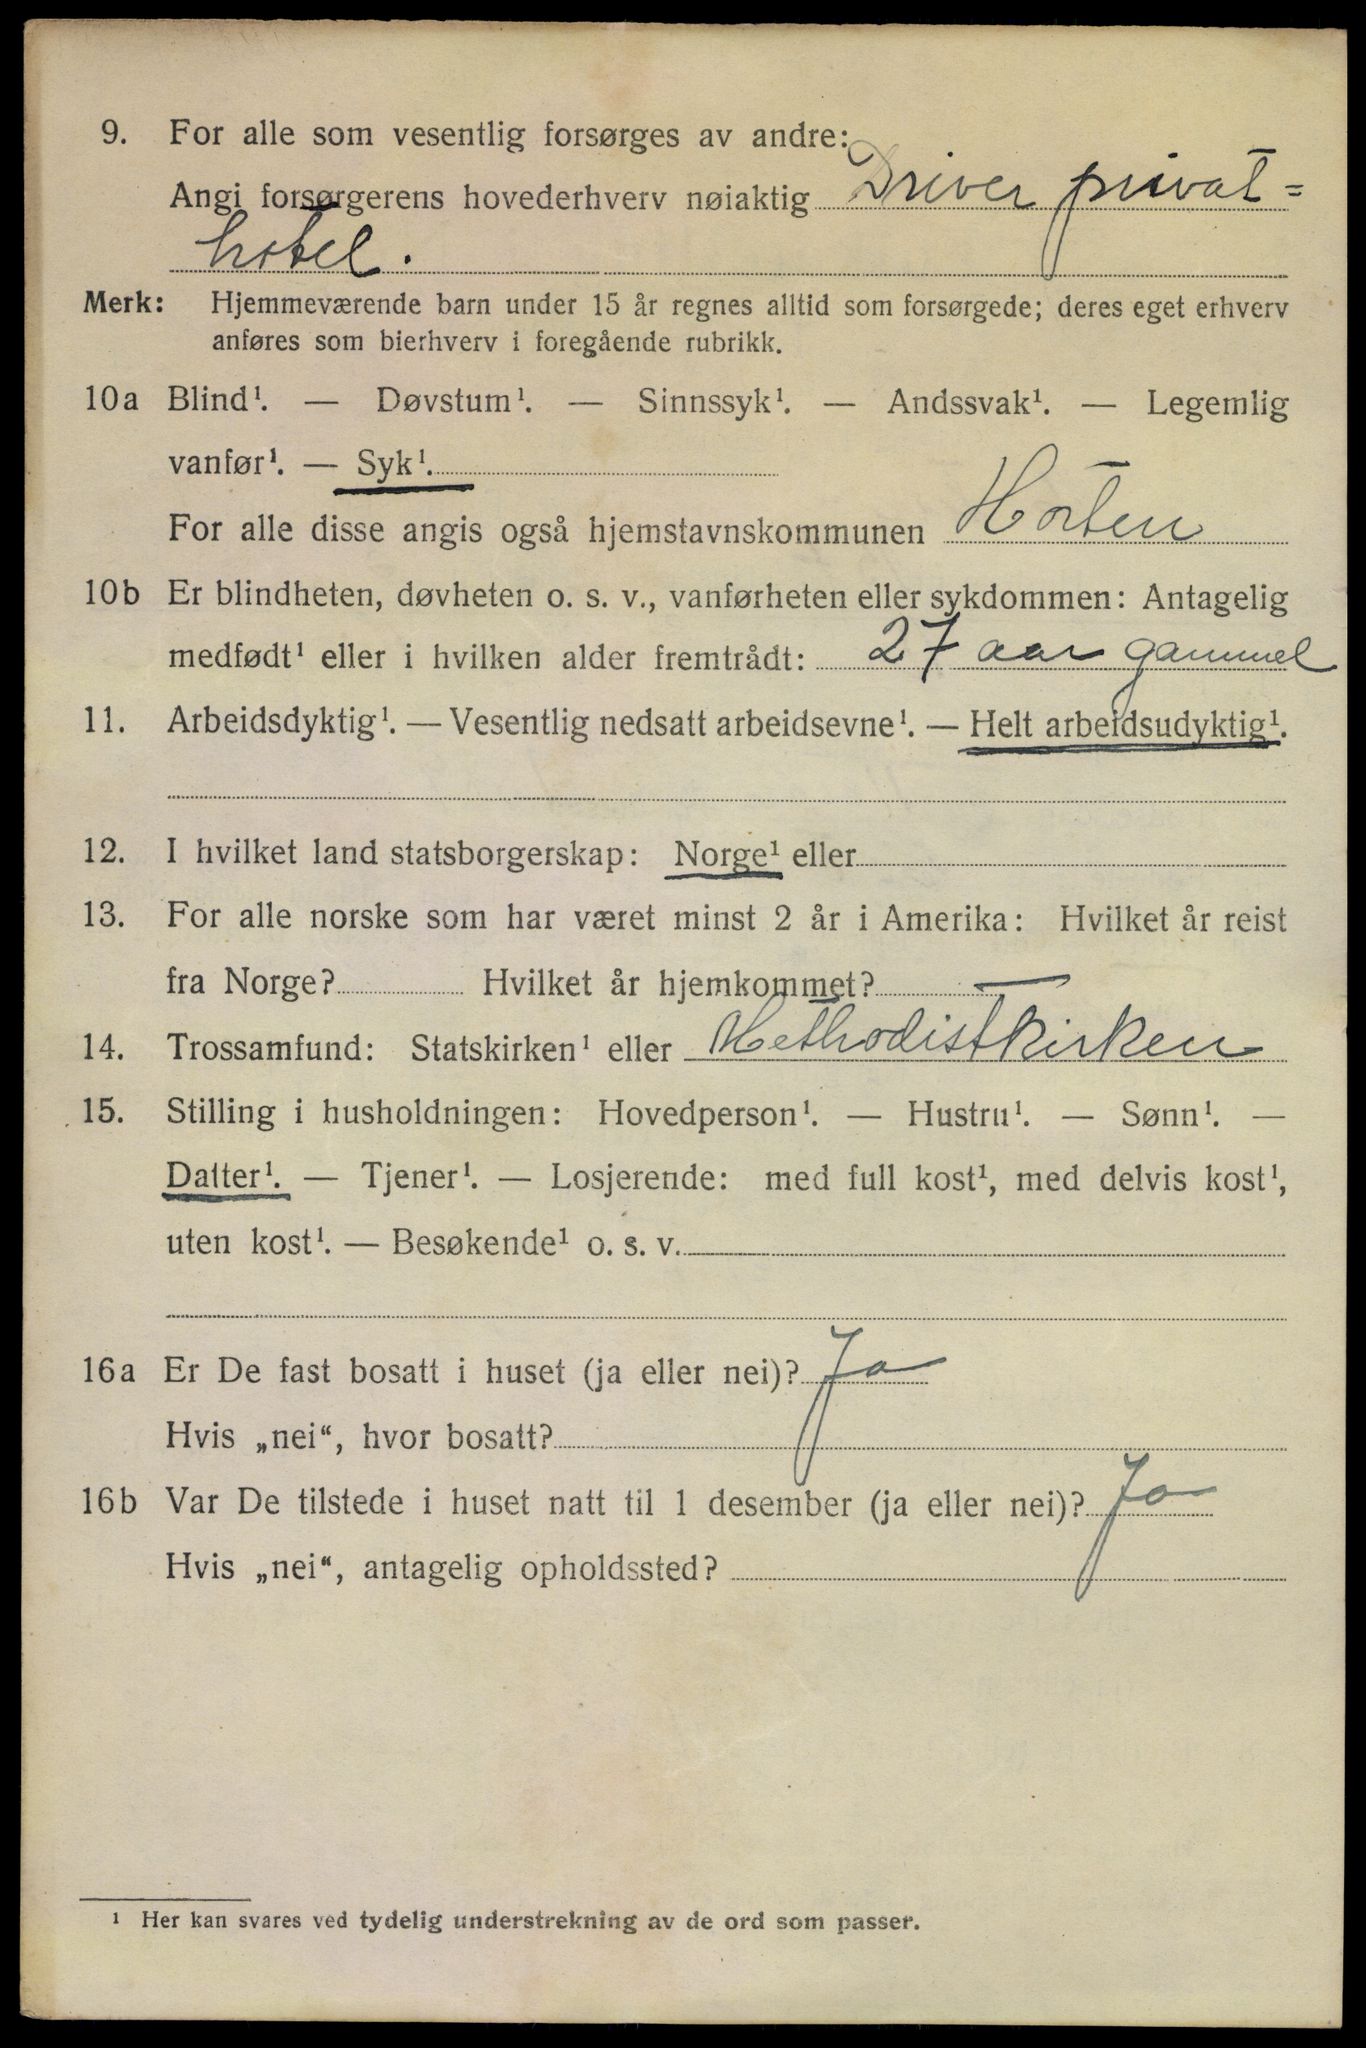 9. For alle som vesentlig forsørges av andre:
Angi forsørgerens hovederhverv nøiaktig Driver privat=
hotel.
Merk: Hjemmeværende barn under 15 år regnes alltid som forsørgede; deres eget erhverv
anføres som bierhverv i foregående rubrikk.
10a Blind¹. — Døvstum¹. — Sinnssyk¹. — Andssvak¹. — Legemlig
vanfør¹. — Syk¹.
For alle disse angis også hjemstavnskommunen Horten
10b Er blindheten, døvheten o. s. v., vanførheten eller sykdommen: Antagelig
medfødt¹ eller i hvilken alder fremtrådt: 27 aar gammel
11. Arbeidsdyktig¹. — Vesentlig nedsatt arbeidsevne¹. — Helt arbeidsudyktig¹.
12. I hvilket land statsborgerskap: Norge¹ eller
13. For alle norske som har været minst 2 år i Amerika: Hvilket år reist
fra Norge? Hvilket år hjemkommet? —
14. Trossamfund: Statskirken¹ eller Methodistkirken
15. Stilling i husholdningen: Hovedperson¹. — Hustru¹. — Sønn¹. —
Datter¹. — Tjener¹. — Losjerende: med full kost¹, med delvis kost¹,
uten kost¹. — Besøkende¹ o. s. v.
16a Er De fast bosatt i huset (ja eller nei)? Ja
Hvis „nei“, hvor bosatt?
16b Var De tilstede i huset natt til 1 desember (ja eller nei)? Ja
Hvis „nei“, antagelig opholdssted?
¹ Her kan svares ved tydelig understrekning av de ord som passer.